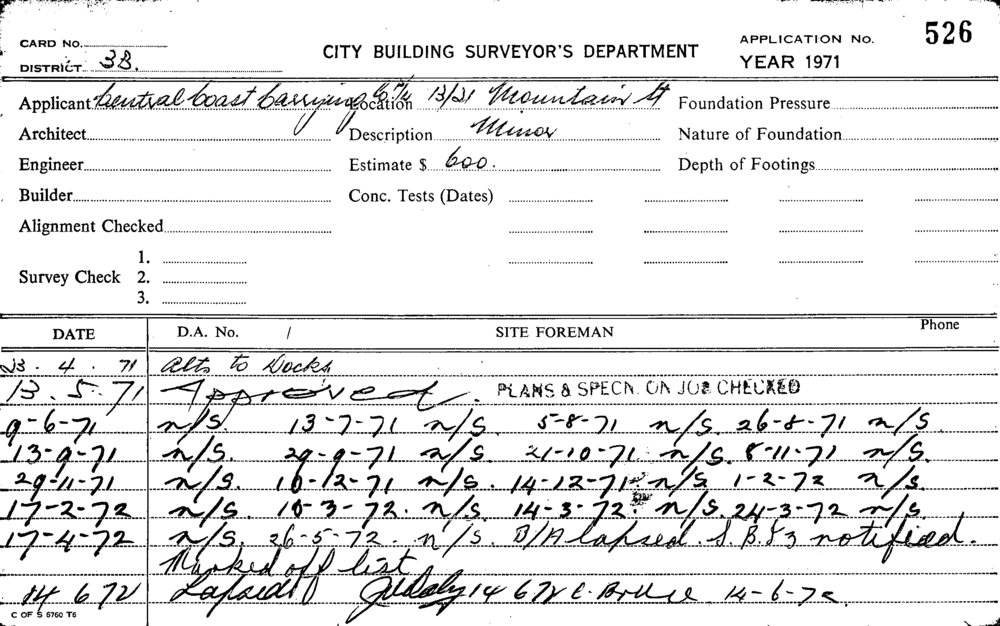 CARD No. APPLICATION No. 526
DISTRICT 3B. CITY BUILDING SURVEYOR'S DEPARTMENT YEAR 1971
Applicant Central Coast Carrying Co P/L Location 13/21 Mountain St Foundation Pressure
Architect Description Minor Nature of Foundation
Engineer Estimate $ 600. Depth of Footings
Builder Conc. Tests (Dates)
Alignment Checked
1.
Survey Check 2.
3.
DATE D.A. No. / SITE FOREMAN Phone
23. 4. 71 Alts to Docks
13. 5. 71 Approved. PLANS & SPECN. ON JOB CHECKED
9-6-71 n/S. 13-7-71 n/S. 5-8-71 n/S. 26-8-71 n/S.
13-9-71 n/S. 29-9-71 n/S. 21-10-71 n/S. 8-11-71 n/S.
29-11-71 n/S. 10-12-71 n/S. 14-12-71 n/S 1-2-72 n/S.
17-2-72 n/S. 10-3-72. n/S. 14-3-72. n/S. 24-3-72 n/S
17-4-72 n/S. 26-5-72. n/S. B/A lapsed. notified.
Marked off list
14 6 72 Lapsed 14 6 72 14-6-72
C OF S 5760 T6